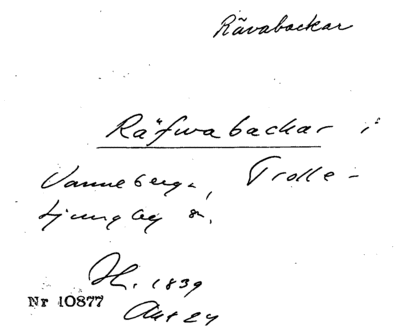 Rävabackar
Räfwabackar i
Vanneberga, Trolle-
Ljungby sn.
H. 1839
Nr 10877
Akt 24